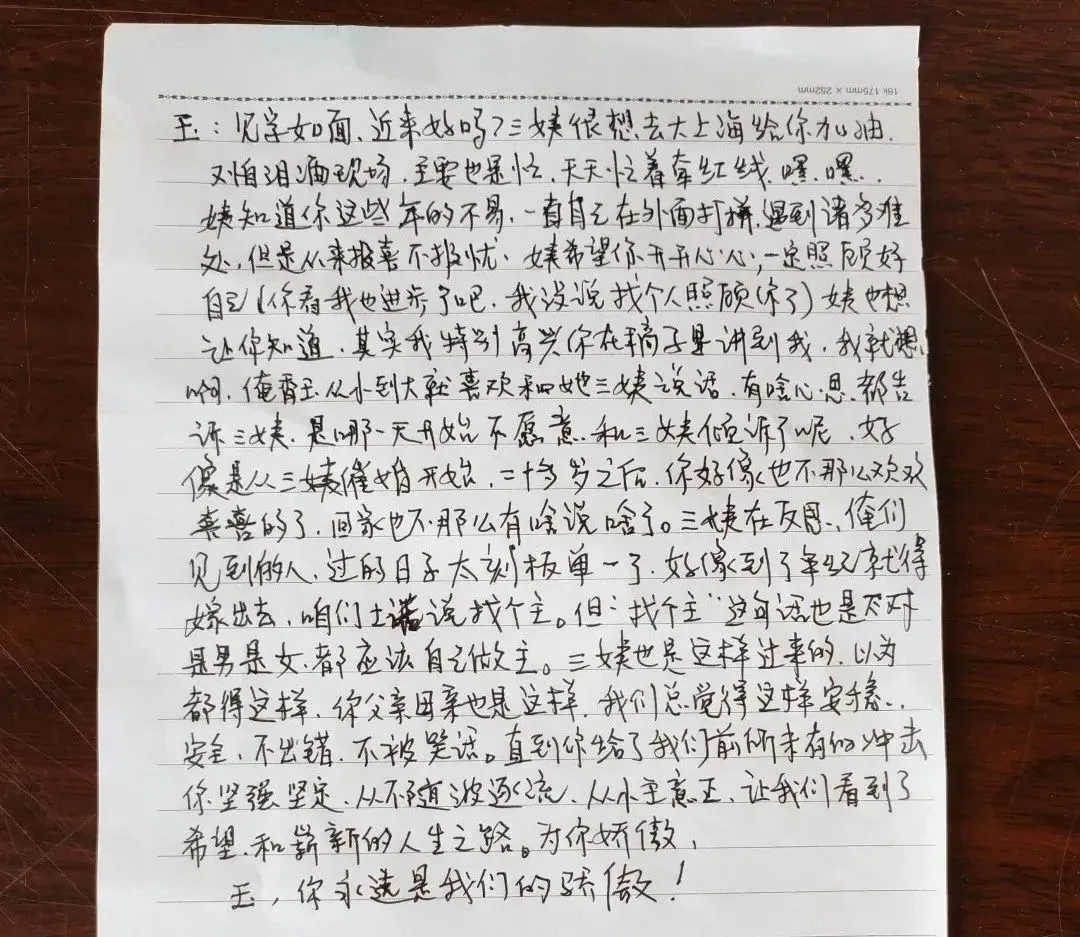 18k 175mm × 252mm
玉：见字如面、近来好吗？三姨很想去大上海给你加油.
又怕泪洒现场.主要也是忙,天天忙着牵红线、嘿.嘿..
姨知道你这些年的不易.一直自己在外面打拼.遇到诸多难
处,但是从来报喜不报忧、姨希望你开开心心,一定照顾好
自己(你看我也进步了吧.我没说找个人照顾你了)姨也想
让你知道.其实我特别高兴你在稿子里讲到我,我就想
啊.俺香玉从小到大就喜欢和她三姨说话.有啥心思.都告
诉三姨.是哪一天开始不愿意.和三姨倾诉了呢.好
像是从三姨催婚开始.二十多岁之后.你好像也不那么欢欢
喜喜的了.回家也不那么有啥说啥了。三姨在反思..俺们
见到的人.过的日子太刻板单一了.好像到了年纪就得
嫁出去、咱们土话说找个主。但"找个主"这句话也是不对
是男是女.都应该自己做主。三姨也是这样过来的.以为
都得这样.你父亲母亲也是这样.我们总觉得这样安稳..
安全.不出错.不被笑话。直到你给了我们前所未有的冲击
你坚强坚定.从不随波逐流.从小主意正.让我们看到了
希望.和崭新的人生之路。为你娇傲,
玉,你永远是我们的骄傲！